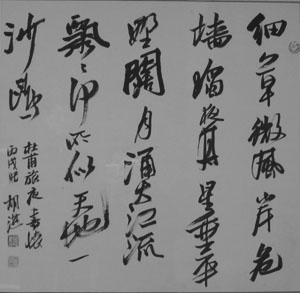 細草微風岸危
檣獨夜舟星垂平
野闊月涌大江流
飄々何所似天地一
沙鷗
杜甫旅夜書懷
丙戌 胡